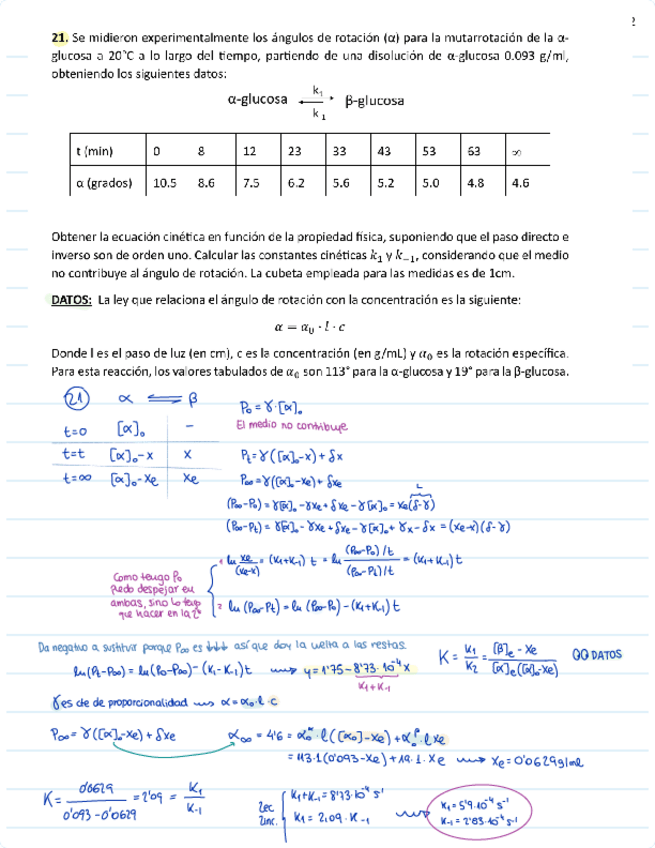 2
21. Se midieron experimentalmente los ángulos de rotación (α) para la mutarrotación de la α-
glucosa a 20°C a lo largo del tiempo, partiendo de una disolución de α-glucosa 0.093 g/ml,
obteniendo los siguientes datos:
k₁
α-glucosa ⇌ β-glucosa
k₁
t (min) 0 8 12 23 33 43 53 63 ∞
α (grados) 10.5 8.6 7.5 6.2 5.6 5.2 5.0 4.8 4.6
Obtener la ecuación cinética en función de la propiedad física, suponiendo que el paso directo e
inverso son de orden uno. Calcular las constantes cinéticas k₁ y k₋₁, considerando que el medio
no contribuye al ángulo de rotación. La cubeta empleada para las medidas es de 1cm.
DATOS: La ley que relaciona el ángulo de rotación con la concentración es la siguiente:
α = α₀ · l · c
Donde l es el paso de luz (en cm), c es la concentración (en g/mL) y α₀ es la rotación específica.
Para esta reacción, los valores tabulados de α₀ son 113° para la α-glucosa y 19° para la β-glucosa.
21 α ⇌ β P₀ = γ·[α]₀
El medio no contribuye
t=0 [α]₀ -
t=t [α]₀-x x Pt = γ([α]₀-x) + δx
t=∞ [α]₀-xe xe P∞ = γ([α]₀-xe) + δxe
(P∞-P₀) = γ[α]₀ - γxe + δxe - γ[α]₀ = xe(δ-γ)
(P∞-Pt) = γ[α]₀ - γxe + δxe - γ[α]₀ + γx - δx = (xe-x)(δ-γ)
1 ln xe/(xe-x) = (k₁+k₋₁) t = ln (P∞-P₀)/t / (P∞-Pt)/t = (k₁+k₋₁) t
Como tengo P₀
puedo despejar en
ambas, sino lo tengo
que hacer en la 2ª
2 ln (P∞-Pt) = ln (P∞-P₀) - (k₁+k₋₁) t
Da negativo a sustituir porque P∞ es ↓↓↓ así que doy la vuelta a las restas.
ln (Pt-P∞) = ln (P₀-P∞) - (k₁-k₋₁) t ⟿ y = 1'75 - 8'73·10⁻⁴ x
k₁+k₋₁
K = k₁/k₂ = [β]e - xe / [α]e([α]₀-xe) DATOS
γ es cte de proporcionalidad ⟿ α = α₀·l·c
P∞ = γ([α]₀-xe) + δxe α∞ = 4'6 = α₀^α·l([α₀]-xe) + α₀^β·l xe
= 113·1(0'093-xe) + 19·1·xe ⟿ xe = 0'0629 g/ml
K = 0'0629 / 0'093-0'0629 = 2'09 = k₁/k₋₁
2ec.
2inc.
k₁+k₋₁ = 8'73·10⁻⁴ s⁻¹
k₁ = 2,09·k₋₁
k₁ = 5'9·10⁻⁴ s⁻¹
k₋₁ = 2'83·10⁻⁴ s⁻¹